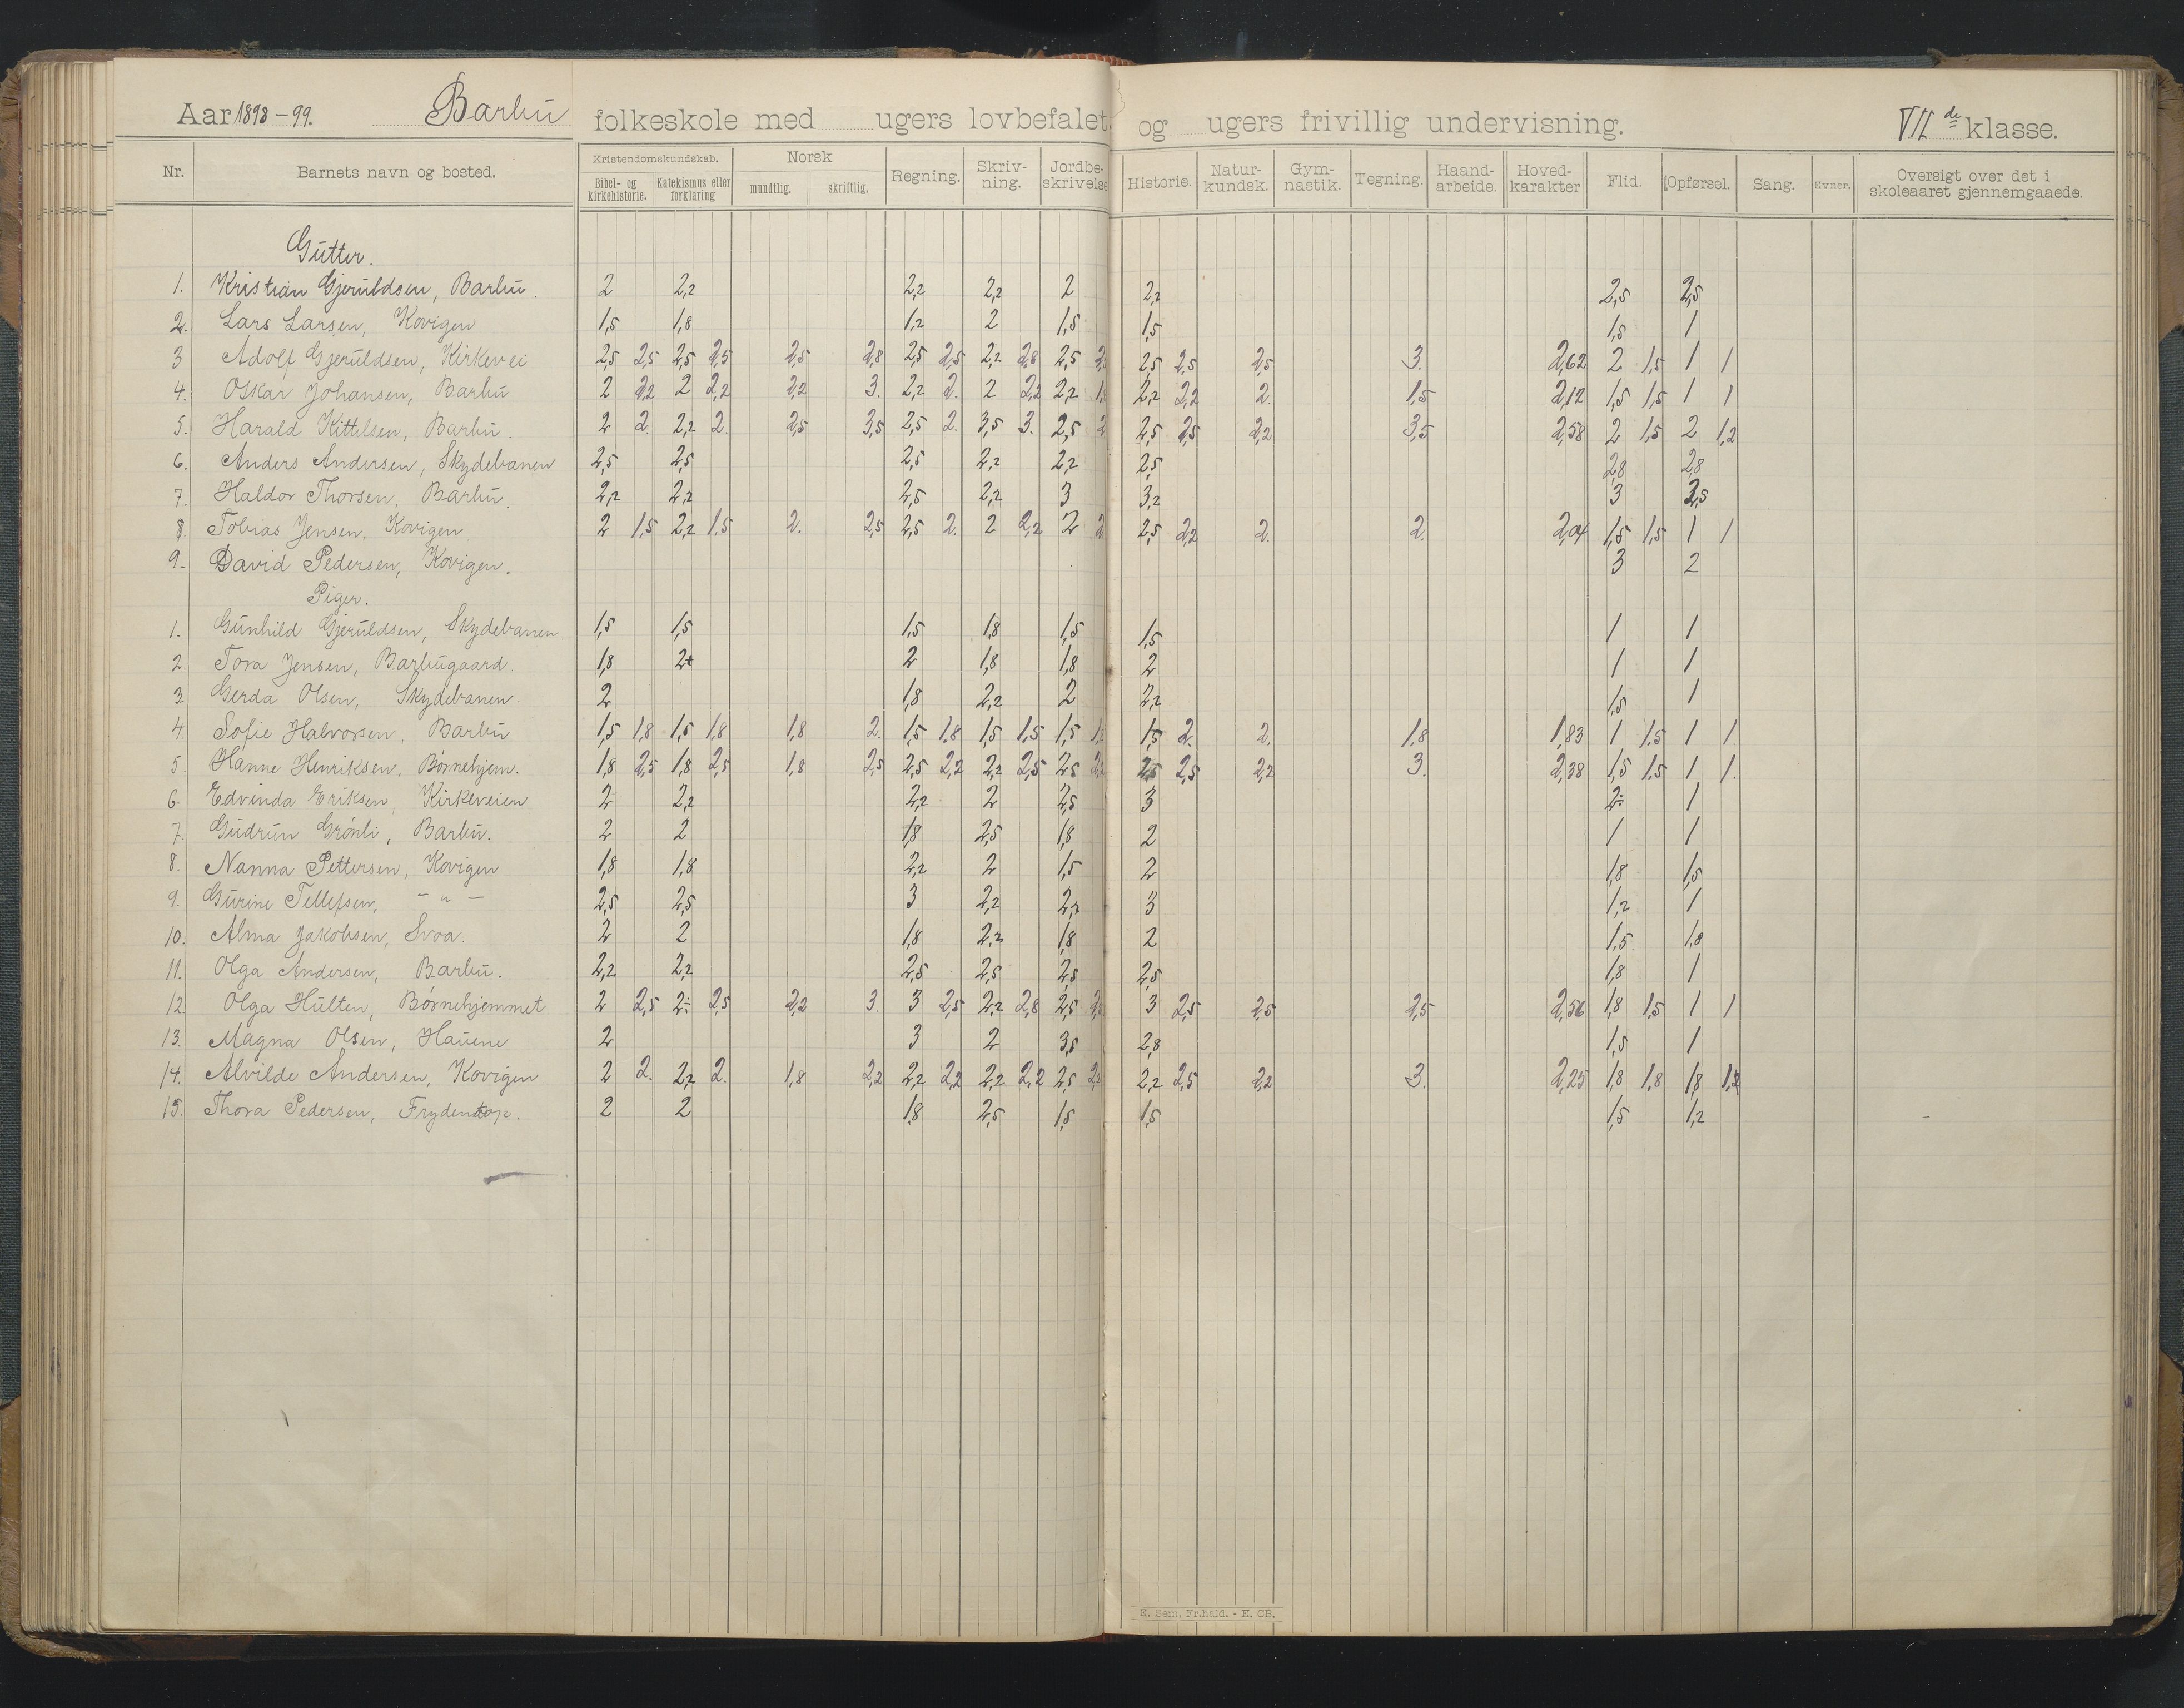 Aar 1898-99. Barbu folkeskole med ugers lovbefalet og ugers frivillig undervisning. VII de klasse.
Nr. Barnets navn og bosted. Kristendomskundskab. Norsk Regning. Skriv-ning. Jordbe-skrivelse Historie. Natur-kundsk. Gym-nastik. Tegning. Haand-arbeide. Hoved-karakter Flid. Opførsel. Sang. Evner. Oversigt over det i skoleaaret gjennemgaaede.
Bibel- og kirkehistorie. Katekismus eller forklaring mundtlig. skriftlig.
Gutter.
1. Kristian Gjeruldsen, Barbu. 2 2,2 2,2 2,2 2 2,2 2,5 2,5
2. Lars Larsen, Kovigen 1,5 1,8 1,2 2 1,5 1,5 1,5 1
3 Adolf Gjeruldsen, Kirkevei 2,5 2,5 2,5 2,5 2,5 2,8 2,5 2,5 2,2 2,8 2,5 2,5 2,5 2,5 3. 2,62 2 1,5 1 1
4. Oskar Johansen, Barbu 2 2,2 2 2,2 2,2 3. 2,2 2. 2 2,2 2,2 2,2 2,2 2. 1,5 2,12 1,5 1,5 1 1
5. Harald Kittelsen, Barbu. 2 2. 2,2 2. 2,5 3,5 2,5 2. 3,5 3. 2,5 2 2,5 2,5 2,2 3,5 2,58 2 1,5 2 1,2
6. Anders Andersen, Skydebanen 2,5 2,5 2,5 2,2 2,2 2,5 2,8 2,8
7. Haldor Thorsen, Barbu. 2,2 2,2 2,5 2,2 3 3,2 3 2,5
8. Tobias Jensen, Kovigen 2 1,5 2,2 1,5 2. 2,5 2,5 2. 2 2,2 2 2 2,5 2,2 2. 2. 2,04 1,5 1,5 1 1
9. David Pedersen, Kovigen. 3 2
Piger.
1. Gunhild Gjeruldsen, Skydebanen. 1,5 1,5 1,5 1,8 1,5 1,5 1 1
2. Tora Jensen, Barbugaard. 1,8 2+ 2 1,8 1,8 2 1 1
3 Gerda Olsen, Skydebanen. 2 1,8 2,2 2 2,2 1,5 1
4. Sofie Halvorsen, Barbu 1,5 1,8 1,5 1,8 1,8 2. 1,5 1,8 1,5 1,5 1,5 1,8 1,5 2. 2. 1,8 1,83 1 1,5 1 1.
5. Hanne Henriksen, Børnehjem. 1,8 2,5 1,8 2,5 1,8 2,5 2,5 2,2 2,2 2,5 2,5 2,2 2,5 2,5 2,2 3. 2,38 1,5 1,5 1 1.
6. Edvinda Eriksen, Kirkeveien 2 2,2 2,2 2 2,5 3 2÷ 1
7. Gudrun Grönli, Barbu. 2 2 1,8 2,5 1,8 2 1 1
8. Nanna Pettersen, Kovigen 1,8 1,8 2,2 2 1,5 2 1,8 1,5
9. Gurine Tellefsen, - " - 2,5 2,5 3 2,2 2,2 3 1,2 1
10. Alma Jakobsen, Svoa. 2 2 1,8 2,2 1,8 2 1,5 1,8
11. Olga Andersen, Barbu. 2,2 2,2 2,5 2,5 2,5 2,5 1,8 1
12. Olga Hulten, Børnehjemmet 2 2,5 2÷ 2,5 2,2 3 3 2,5 2,2 2,8 2,5 2,5 3 2,5 2,5 2,5 2,56 1,8 1,5 1 1
13. Magna Olsen, Hauene 2 3 2 3,5 2,8 1,5 1
14. Alvilde Andersen, Kovigen 2 2. 2,2 2. 1,8 2,2 2,2 2,2 2,2 2,2 2,5 2,2 2,2 2,5 2,2 3. 2,25 1,8 1,8 1,8 1,2
15. Thora Pedersen, 2 2 1,8 2,5 1,5 1,5 1,5 1,2
E. Sem, Fr.hald. - E. CB.